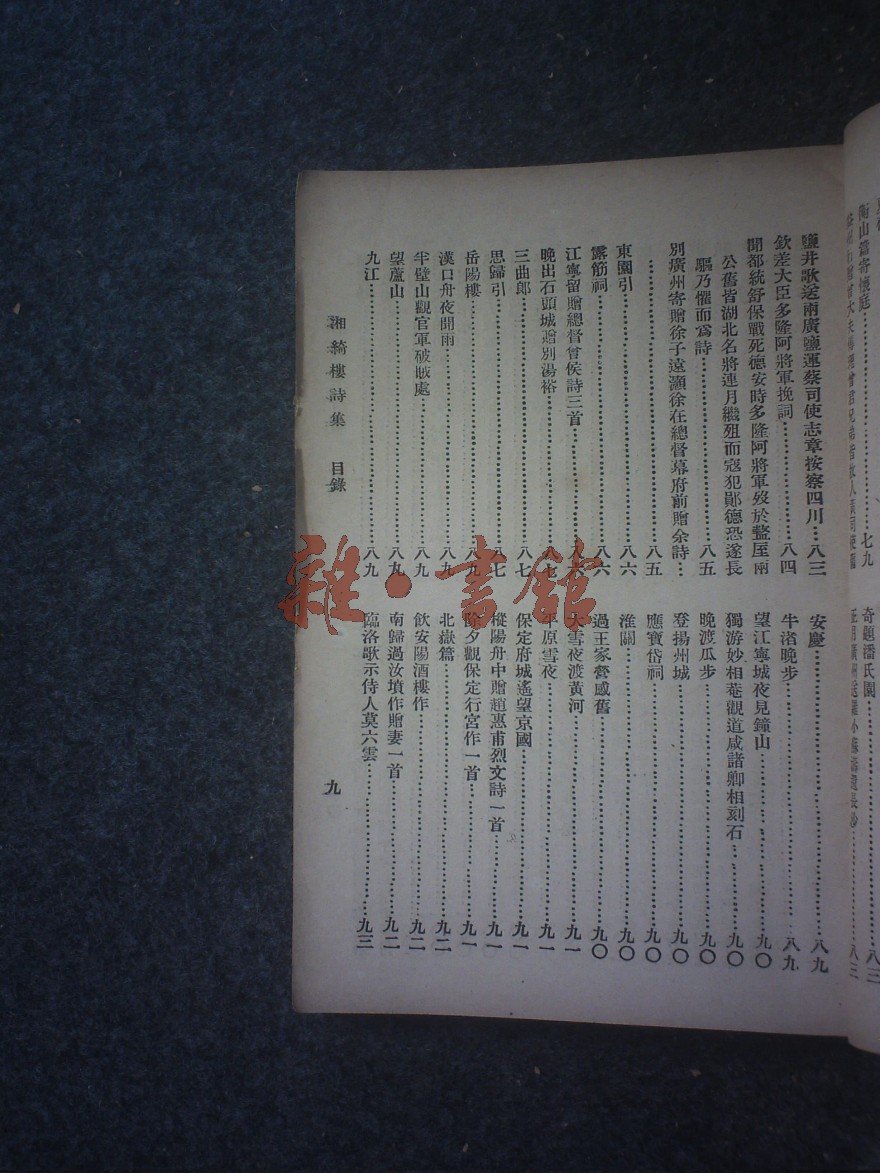 衡山篇寄懷庭……七九
奇題潘氏園……八三
鹽井歌送兩廣鹽運蔡司使志章按察四川……八三
欽差大臣多隆阿將軍挽詞……八四
聞都統舒保戰死德安時多隆阿將軍歿於盩厔兩
公舊皆湖北名將連月繼殂而寇犯鄖德恐遂長
驅乃懼而爲詩……八五
別廣州寄贈徐子遠灝徐在總督幕府前贈余詩…
……八五
東園引……八六
露筋祠……八六
江寧留贈總督曾侯詩三首……八六
晚出石頭城贈別湯裕……八七
三曲郎……八七
思歸引……八七
岳陽樓……八九
漢口舟夜聞雨……八九
半壁山觀官軍破賊處……八九
望蘆山……八九
九江……八九
安慶……八九
牛渚晚步……八九
望江寧城夜見鐘山……九〇
獨游妙相菴觀道咸諸卿相刻石…九〇
晚渡瓜步……九〇
登揚州城……九〇
應寶岱祠……九〇
淮關……九〇
過王家營感舊……九〇
大雪夜渡黃河……九一
平原雪夜……九一
保定府城遙望京國……九一
樅陽舟中贈趙惠甫烈文詩一首……九一
除夕觀保定行宮作一首……九一
北嶽篇……九二
飲安陽酒樓作……九二
南歸過汝墳作贈妻一首……九二
臨洛歌示侍人莫六雲……九三
湘綺樓詩集 目錄
九
雜·書館